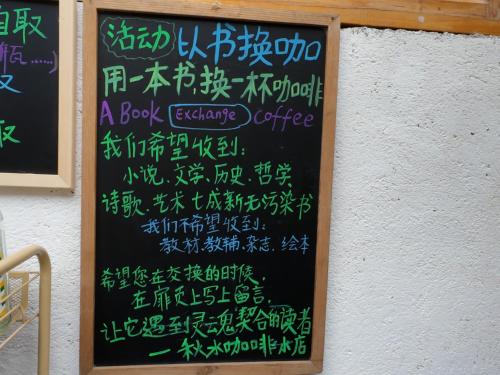 自取
瓶……)
取
活动 以书换咖
用一本书,换一杯咖啡
A Book Exchange coffee
我们希望收到:
小说、文学、历史、哲学
诗歌、艺术 七成新无污染书
我们不希望收到:
教材、教辅、杂志、绘本
希望您在交换的时候,
在扉页上写上留言,
让它遇到灵魂契合的读者
— 秋水咖啡冰店